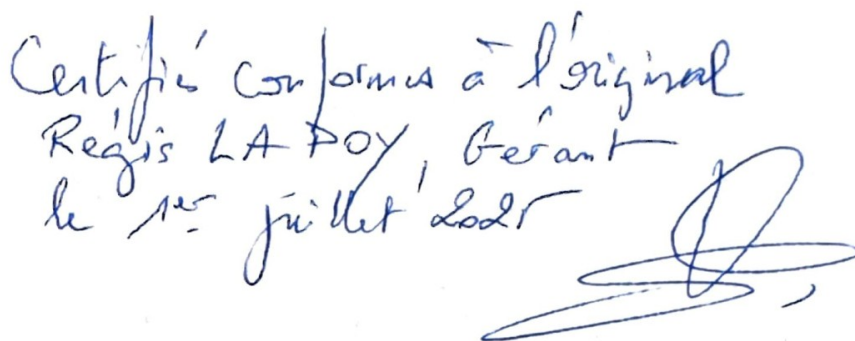 Certifiés conformes à l'original
Régis LAPOY, Gérant
le 1er juillet 2025